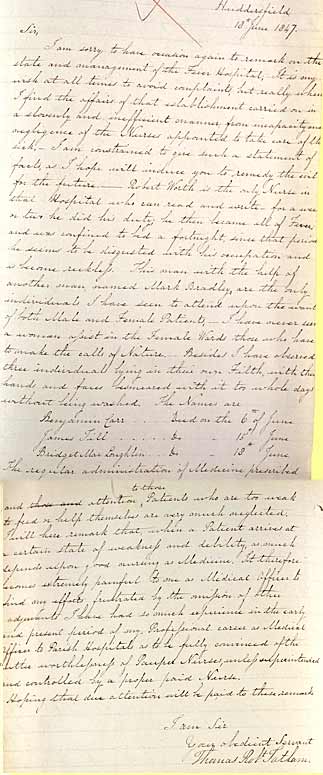 Huddersfield
18th June 1847.
Sir,
I am sorry to have occasion again to remark on the
state and management of the Fever Hospital, It is my
wish at all times to avoid complaints, but really when
I find the affairs of that establishment carried on in
a slovenly and inefficient manner from incapacity and
negligence of the Nurses appointed to take care of the
sick. I am constrained to give such a statement of
facts, as I hope will induce you to remedy the evil
for the future. Robert Worth is the only Nurse in
that Hospital who can read and write - for a week
or two he did his duty, he then became ill of Fever,
and was confined to bed a fortnight, since that period
he seems to be disgusted with his occupation and
is become reckless. This man with the help of
another man, named Mark Bradley, are the only
individuals I have seen to attend upon the wants
of both Male and Female Patients, I have never seen
a woman assist in the Female Wards those who have
to make the call of Nature. Besides I have observed
three individuals lying in their own Filth, with their
hands and faces besmeared with it to whole days
without being washed. The Names are
Benjamin Carr . . . . Died on the 6th of June
James Fill . . . . . do - 15th June
Bridget Mac Loughlen - do - 18th June
The regular administration of Medicine prescribed
to those
and those and attention, Patients who are too weak
to feed or help themselves are very much neglected.
I will here remark that, when a Patient arrives at
a certain state of weakness and debility, as much
depends upon good nursing as Medicine. It therefore
becomes extremely painful to me as Medical Officer to
find my efforts frustrated by the omission of other
adjuvants I have had so much experience in the early
and present period of my Professional career as Medical
Officer to Parish Hospitals as to be fully convinced of the
utter worthlessness of Pauper Nurses, unless superintended
and controlled by a proper paid Nurse.
Hoping that due attention will be paid to these remarks
I am Sir
Your obedient Servant
Thomas Robt Tatham.